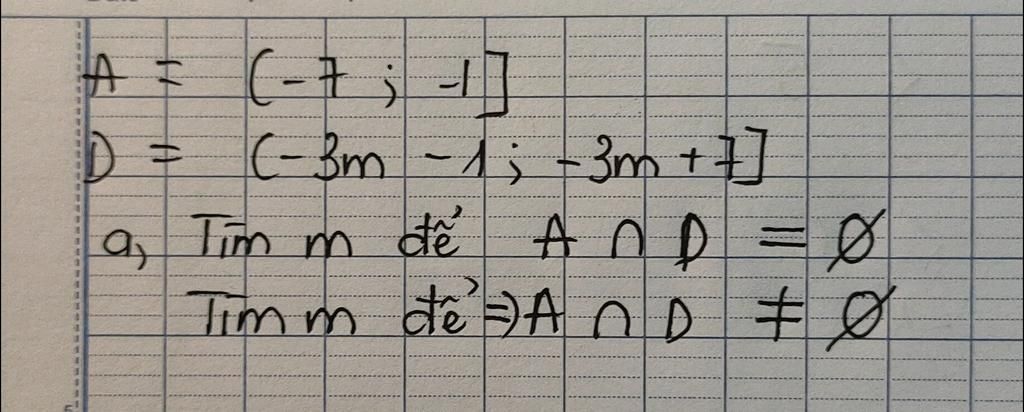 A = (-7 ; -1]
D = (-3m - 1 ; -3m + 7]
a, Tìm m để A ∩ D = ∅
Tìm m để => A ∩ D ≠ ∅